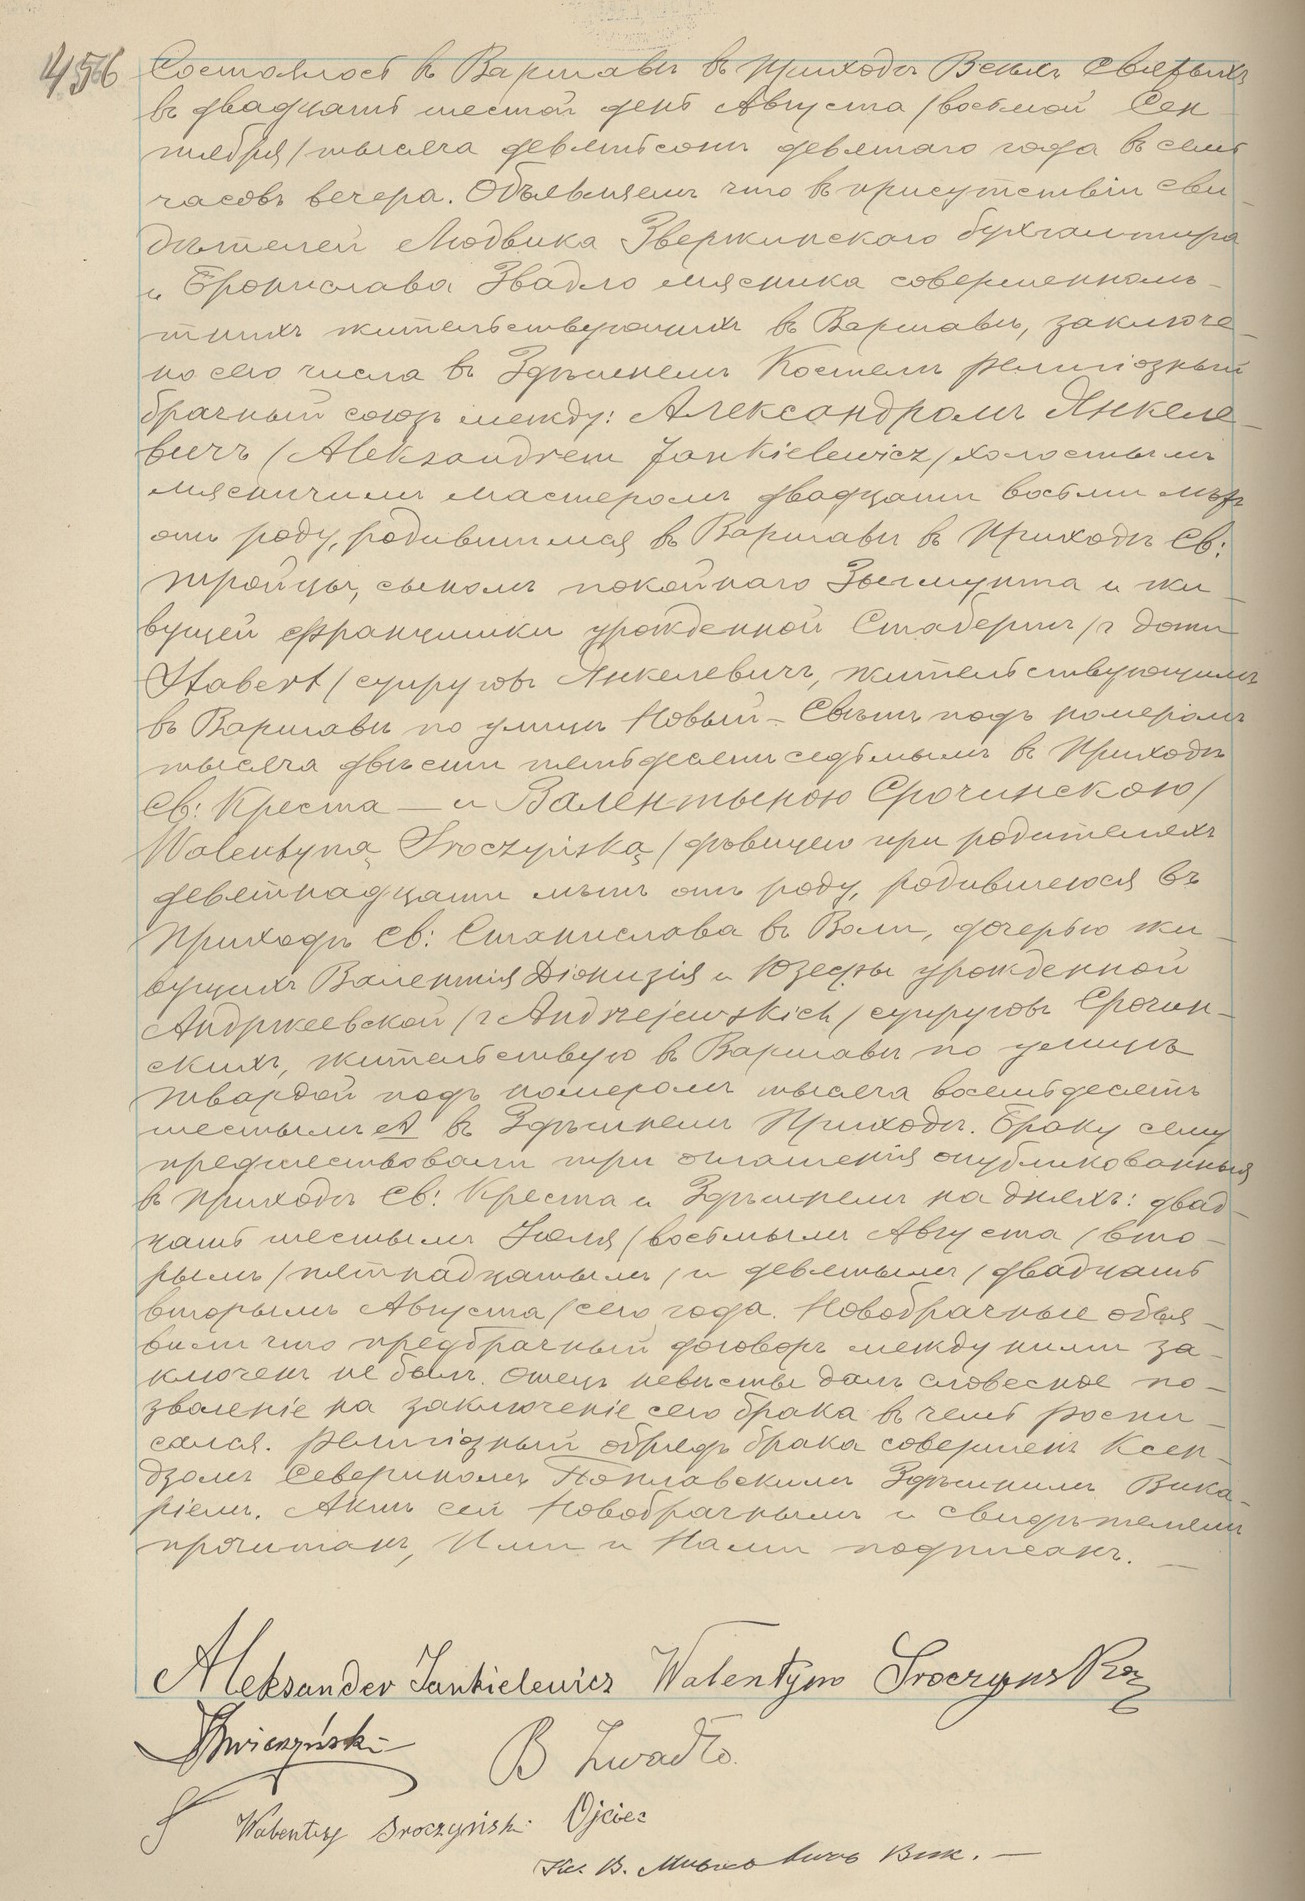 456
Состоялось въ Варшавѣ въ приходѣ Всѣхъ Святыхъ
въ двадцать шестой день Августа /восьмой Сен-
тября/ тысяча девятьсотъ девятаго года въ семь
часовъ вечера. Объявляемъ что въ присутствіи сви-
дѣтелей Людвика Звержинскаго бухгалтера
и Бронислава Звадло мясника совершеннолѣ-
тнихъ жительствующихъ въ Варшавѣ, заключе-
но сего числа въ Здѣшнемъ Костелѣ религіозный
брачный союзъ между: Александромъ Янкеле-
вичъ /Aleksandrem Jankielewicz/ холостымъ
мясничимъ мастеромъ двадцати восьми лѣтъ
отъ роду, родившимся въ Варшавѣ въ приходѣ Св:
Тройцы, сыномъ покойнаго Зыгмунта и жи-
вущей Францишки урожденной Стабертъ /z domu
Stabert/ супруговъ Янкелевичъ, жительствующимъ
въ Варшавѣ по улицѣ Новый-Свѣтъ подъ номеромъ
тысяча двѣсти пятьдесятъ седьмымъ въ Приходѣ
Св: Креста — и Валентыною Срочинскою/
Walentyną Sroczyńską/ дѣвицею при родителяхъ
девятнадцати лѣтъ отъ роду, родившеюся въ
Приходѣ Св: Станислава въ Воли, дочерью жи-
вущихъ Валентія Діонизія и Юзефы урожденной
Андржеевской /z Andrzejewskich/ супруговъ Срочин-
скихъ, жительствую въ Варшавѣ по улицѣ
Твардой подъ номеромъ тысяча восемьдесятъ
шестымъ А въ Здѣшнемъ Приходѣ. Браку сему
предшествовали три оглашенія опубликованныя
въ приходѣ Св: Креста и Здѣшнемъ на дняхъ: двад-
цать шестымъ Іюля /восьмымъ Августа/ вто-
рымъ /пятнадцатымъ/ и девятымъ /двадцать
вторымъ Августа/ сего года. Новобрачные объя-
вили что предбрачный договоръ между ними за-
ключенъ не былъ. Отецъ невѣсты далъ словесное по-
зволеніе на заключеніе сего брака въ чемъ распи-
сался. Религіозный обрядъ брака совершенъ Ксен-
дзомъ Севериномъ Поплавскимъ Здѣшнимъ Вика-
ріемъ. Актъ сей Новобрачнымъ и свидѣтелямъ
прочитанъ, Ими и Нами подписанъ. —
Aleksander Jankielewicz Walentyna Sroczynska
B Zwadło.
Walenty Sroczyński Ojciec
Кс. В. Вик. —